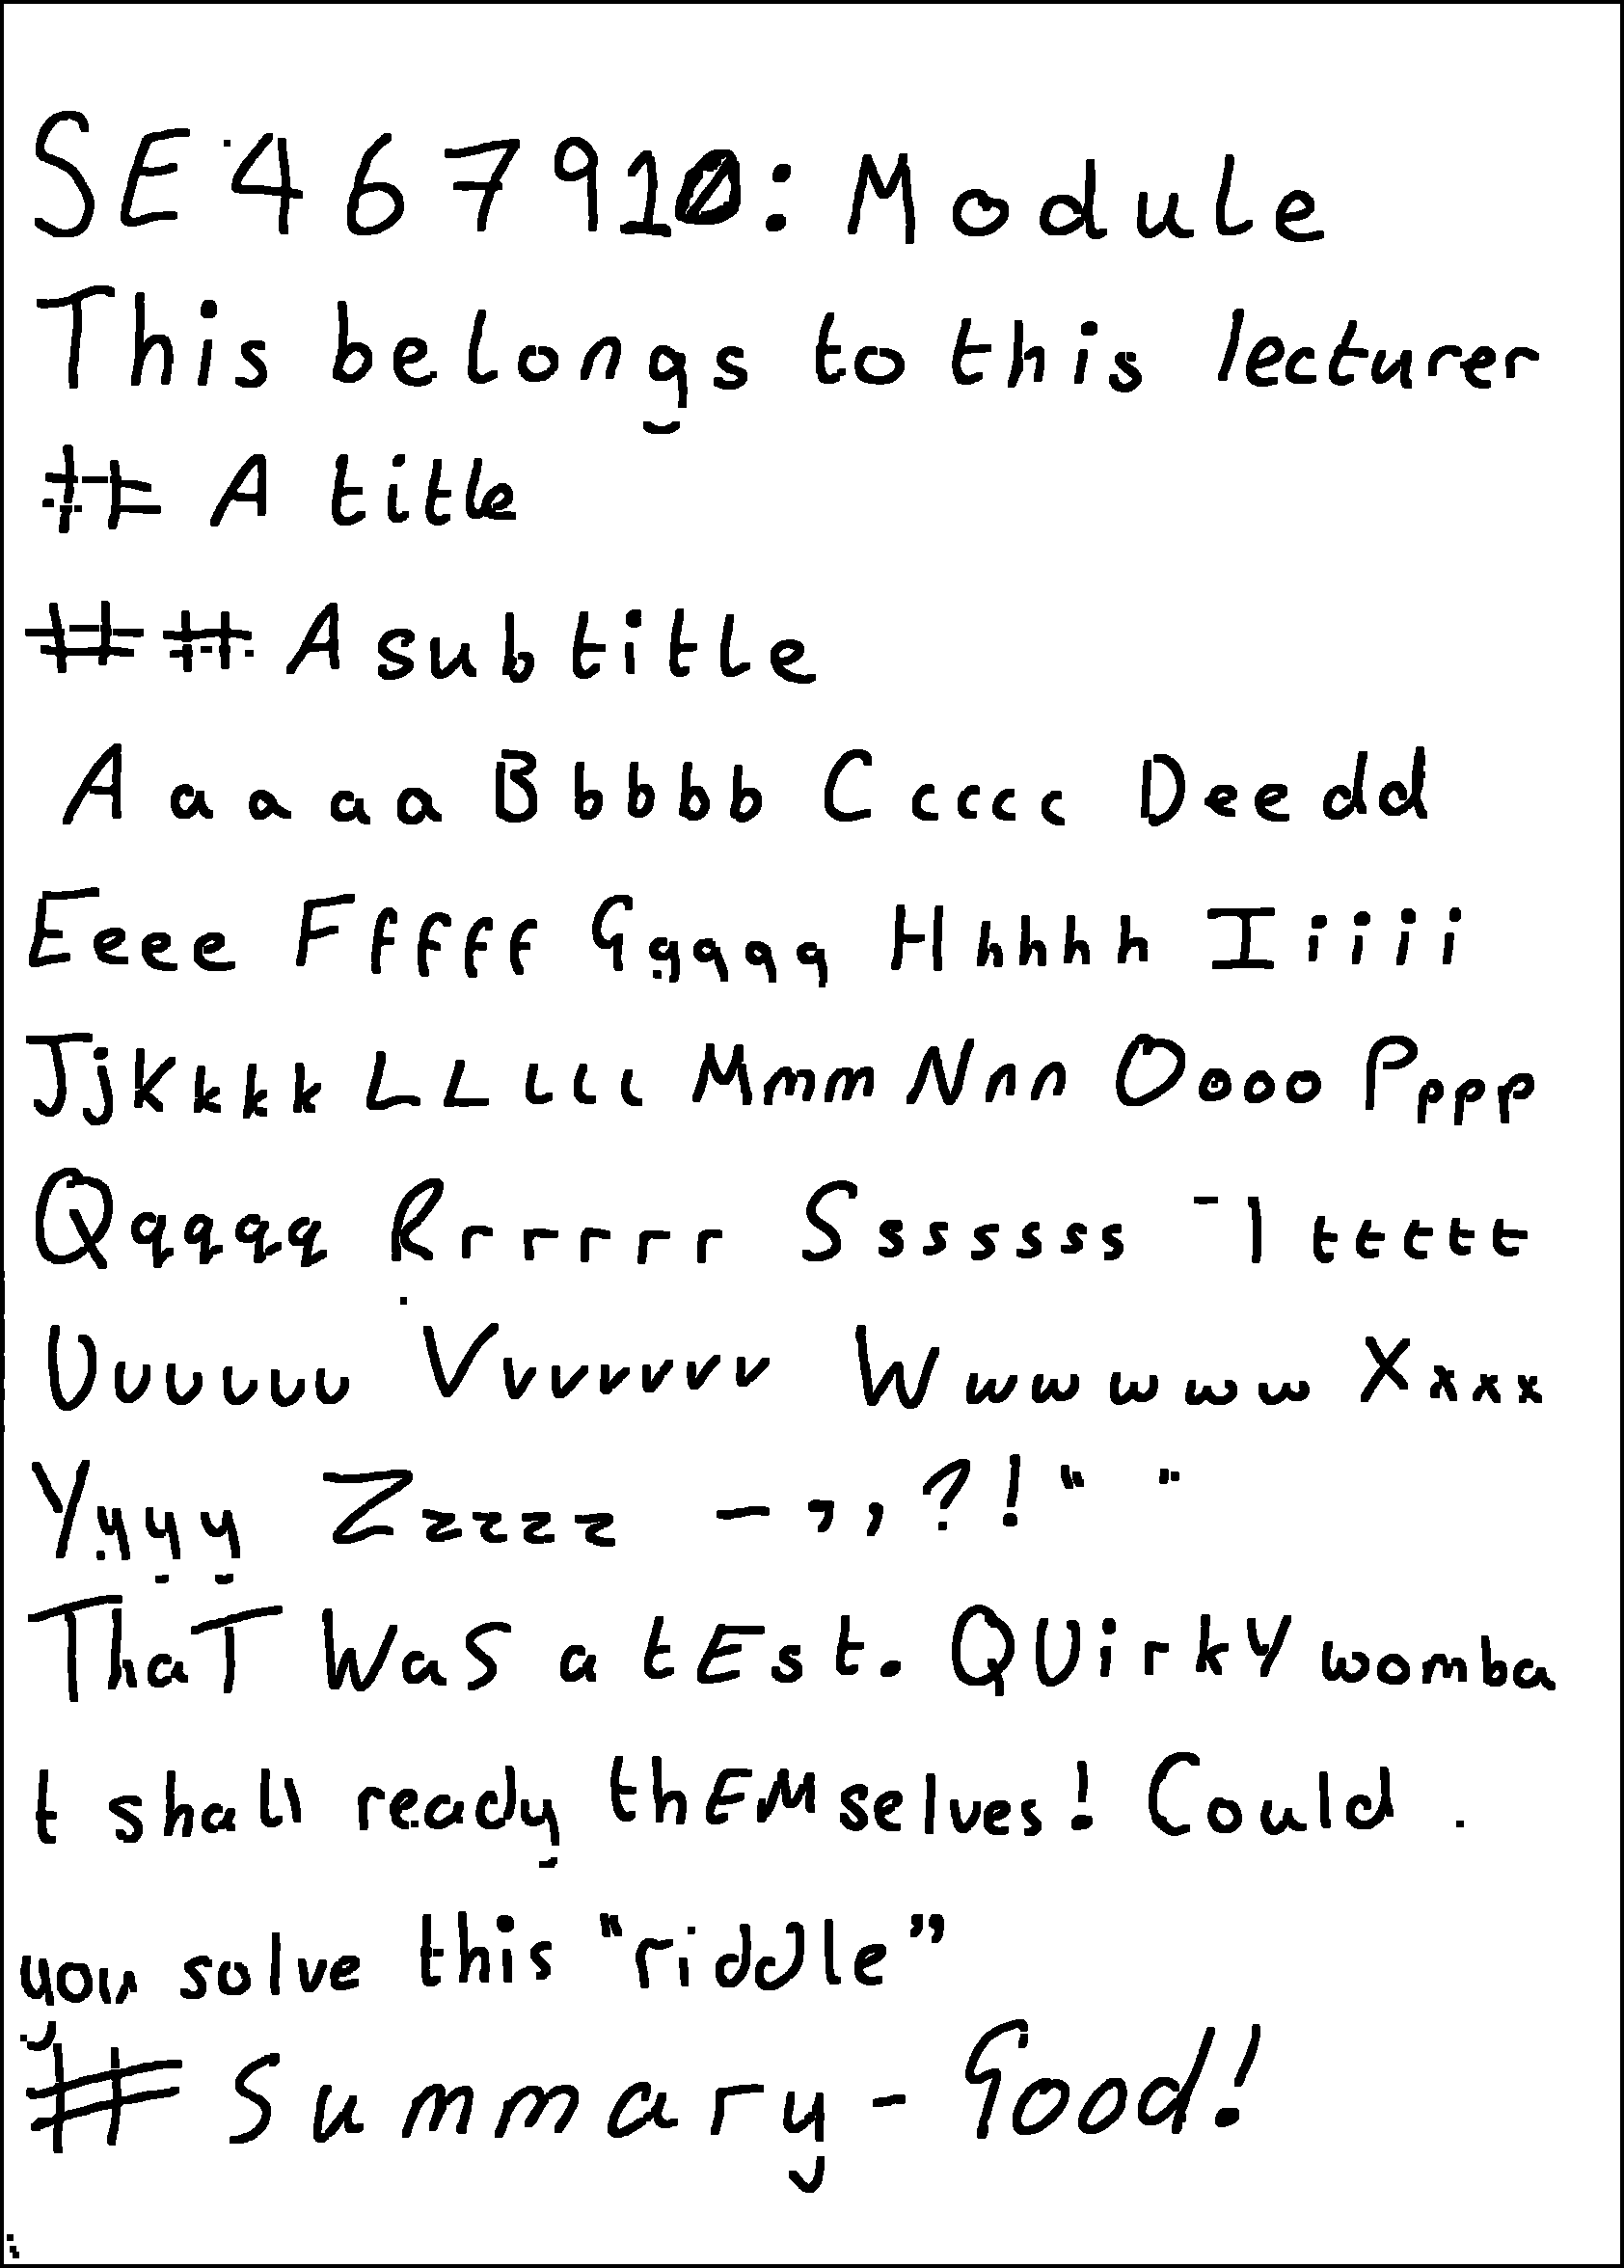 SE467910: Module
This belongs to this lecturer
# A title
## A subtitle
A a a a a B b b b b C c c c c D e e d d
E e e e F f f f f G g g g g H h h h h I i i i i
J j K k k k L L l l l M m m N n n O o o o P p p p
Q q q q q R r r r r r S s s s s s s T t t t t t
U u u u u u V v v v v v v W w w w w w X x x x
Y y y y Z z z z z - , , ? ! " "
ThaT WaS a tEst. QUirkY womba
t shall ready thEMselves! Could
you solve this "riddle"
# Summary - Good!